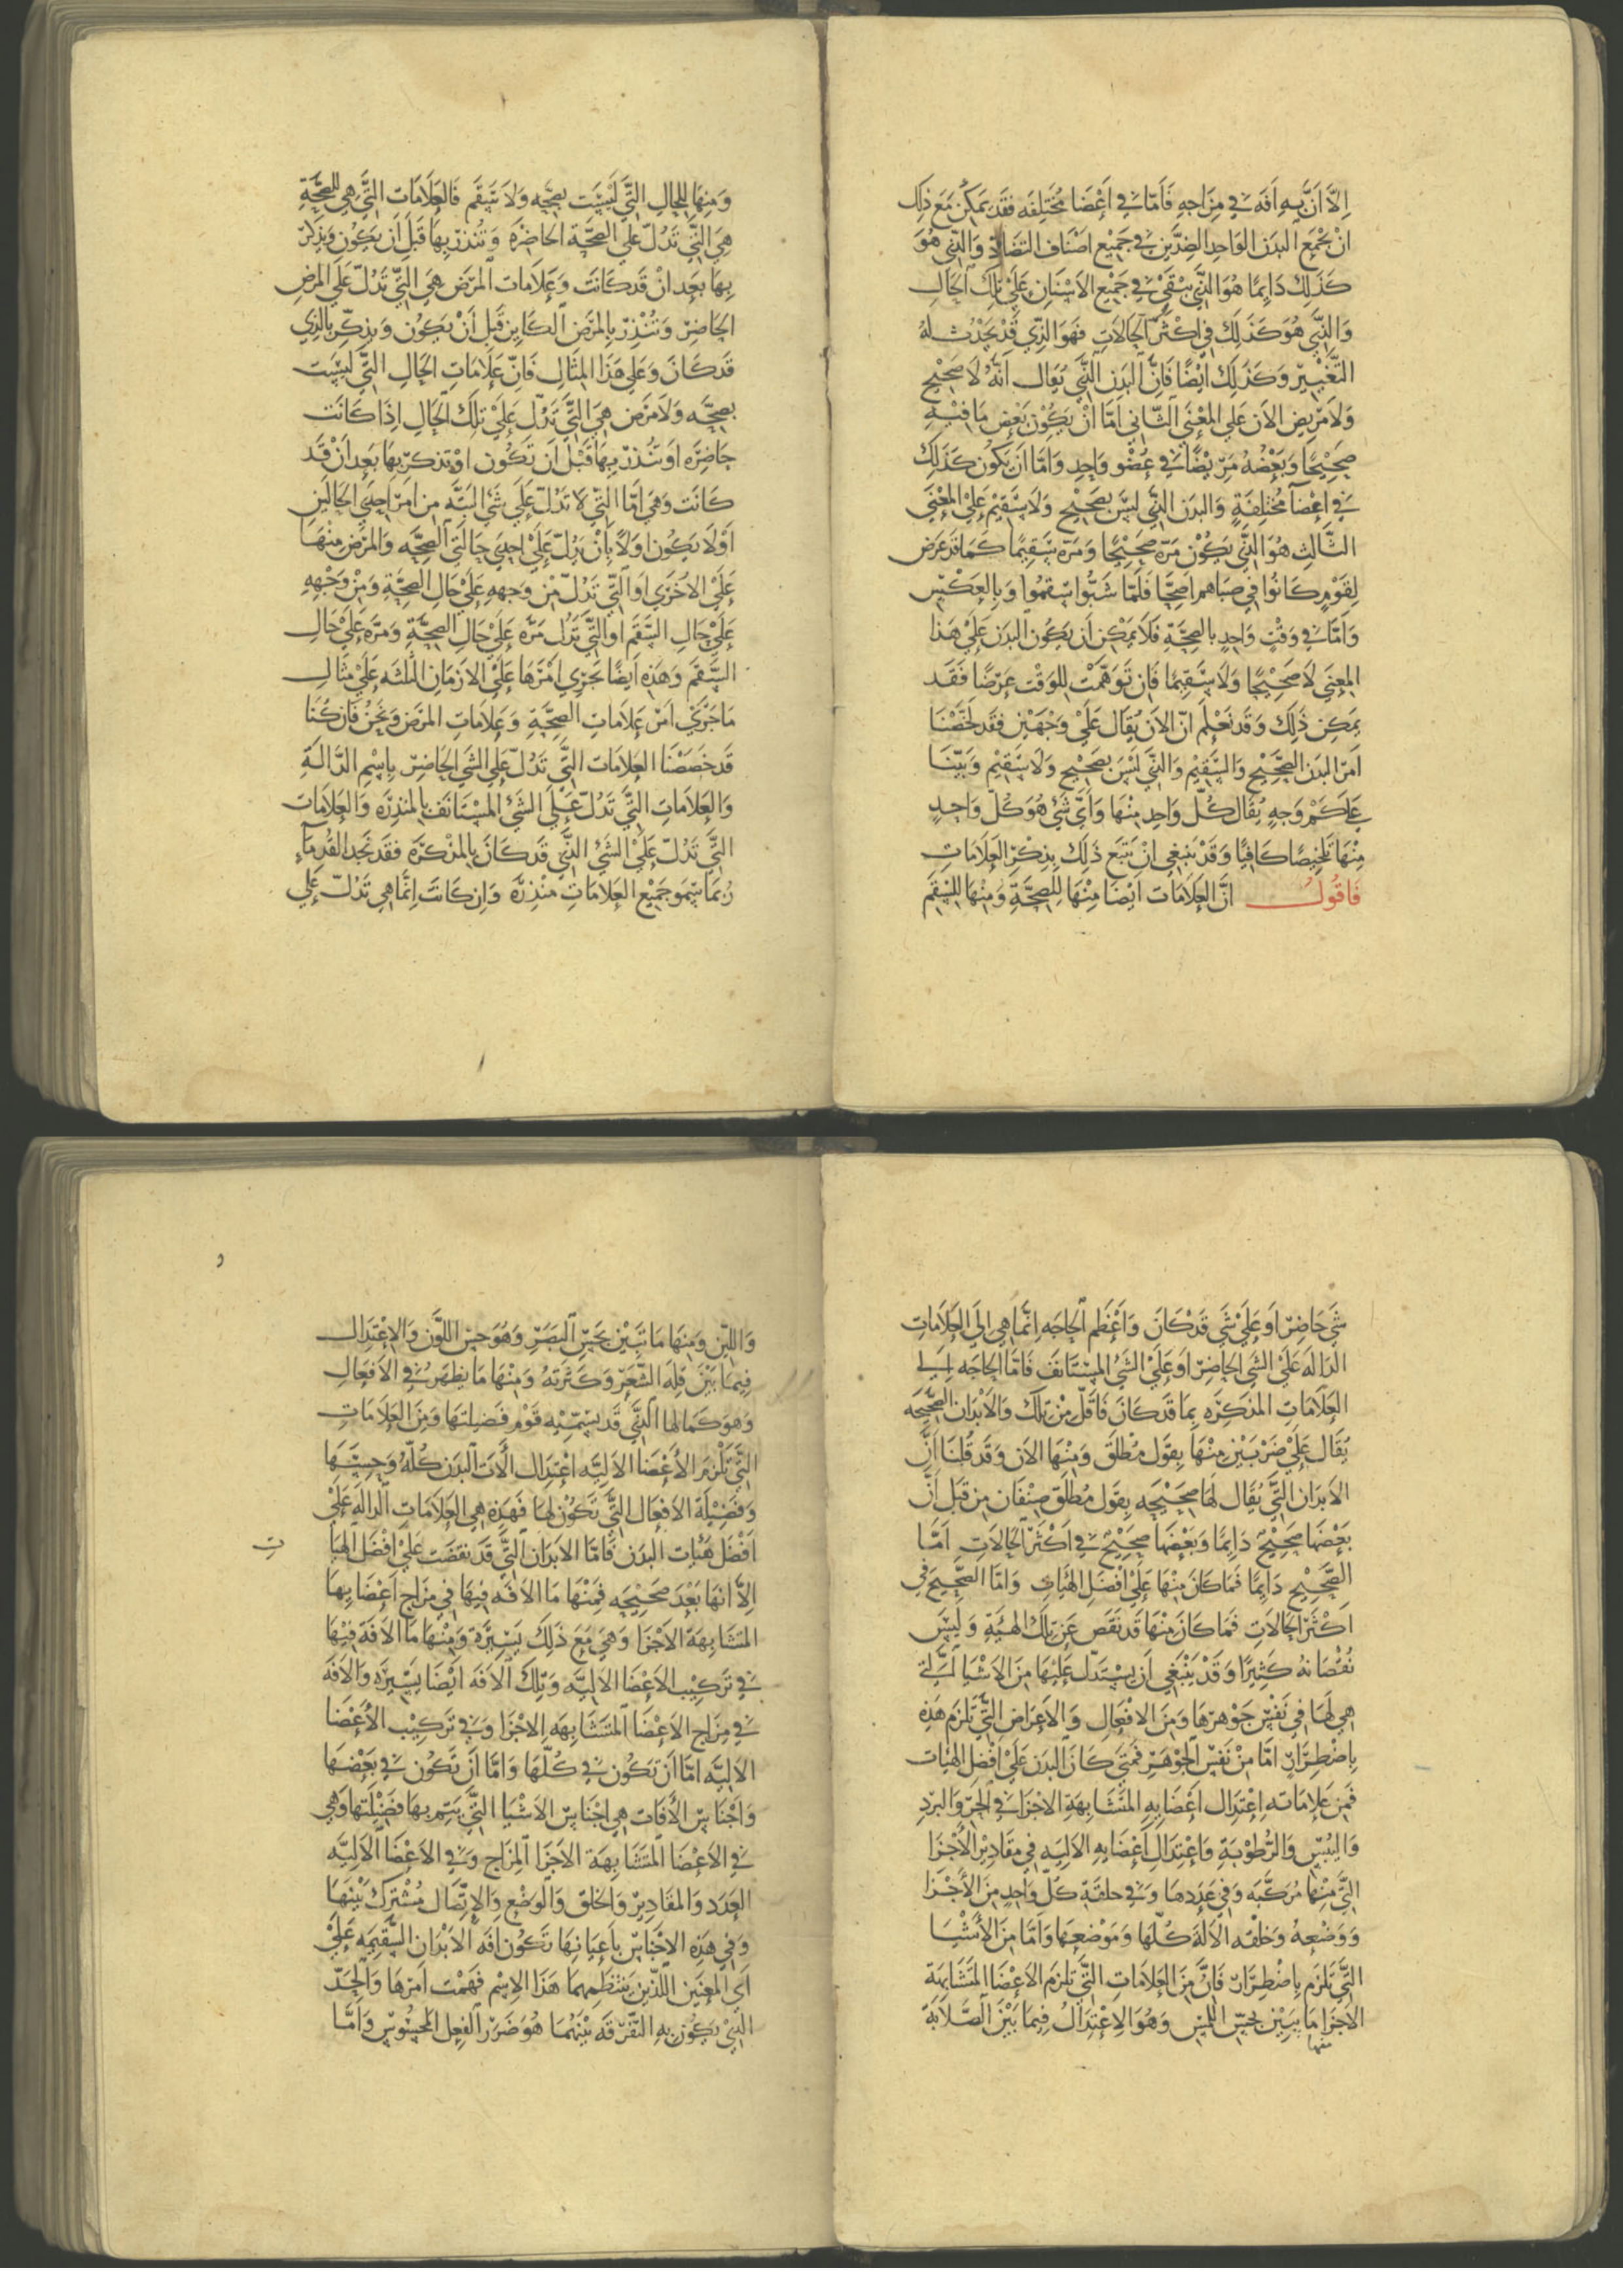 اِلَّا اَنَّ بِهِ اٰفَه فِي مِزَاجِهِ فَاَمَّا فِي اَعْضَا مُخْتَلِفَه فَقَد يمَكِنُ مَعَ ذَلِكَ
انْ يَجْمَع البدَن الوَاحِد الضِدَّين فِي جَمِيْع اصْنَاف التضَادّ وَالذِّي هُوَ
كَذَلِكَ دَايمًا هُوَ الذَّي يَبْقَيْ فِي جَمِيْع الاَسْنَانِ عَلَيْ تِلْكَ الحَالِ
وَالذِّي هُوَ كَذَلِكَ فِي اكثَرِ الحَالاَتِ فَهوَ الذِّي قَدْ يَحْدُث لَهُ
التَّغْيِير وَكَذَلِكَ ايْضًا فَاِنَّ البدَن الذَّي يُقَال اَنَّهُ لاَ صَحِيْح
وَلاَ مَرِيض الاَن عَلي المعْنَي الثَّاني اَمَّا انْ يَكُوْن بَعْض مَا فيْهِ
صَحِيْحًا وَبَعْضُهُ مَرِيْضًا في عُضْو وَاحِدٍ وَامَّا ان يَكُون كَذَلِكَ
في اعْضَا مُختَلِفَةٍ وَالبدَن الذَّي ليسَ بصَحِيْح وَلاَ سَقِيْم عَلي المعْنَي
الثَّالثِ هُوَ الذَّي يَكُوْن مَرّه صَحِيْحًا وَمَرّه سَقِيمًا كَمَا قَد عَرَض
لِقَوْمٍ كَانُوا فِي صَبَاهُم اَصِحَّا فَلمَّا شَبُّوا سَقِمُوا وَبِالعَكْسِ
وَامَّا في وَقْتٍ وَاحِدٍ بِالصِحَّةِ فَلاَ يمْكِن اَن يَكُون البدَن عَلَيْ هَذا
المعنَي لاَ صَحِيْحًا وَلاَ سَقِيمًا فَاِن تَوَهَّمْت للوَقْتِ عَرَضًا فَقَد
يمكِن ذَلِكَ وَقَد نَعْلَم انَّ الاَن يُقَال عَلَيْ وَجْهَيْن فقَد لخَّصْنَا
اَمر البدَن الصَّحِيْح وَالسَّقيْم وَالذَّي لَيسَ بصَحِيْح وَلاَ سَقِيْم وَبَيَّنَا
عَلَي كَمْ وَجهٍ يُقَال كُلّ وَاحِدٍ مِنْهَا وَايّ شَيْ هُوَ كُلّ وَاحِدٍ
مِنْهَا تَلخِيصًا كَافيًا وَقَدْ يَنبَغِي انْ نتبع ذَلِكَ بِذِكْرِ العَلاَمَاتِ
فَاقُولُ انَّ العَلاَمَات ايْضَا مِنْهَا لِلصِحَّةِ وَمِنْهَا لِلسَقَم
وَمِنهَا لِلحَالِ التَّي لَيسَت بصحّه وَلاَ سَقَم فَالعَلاَمَاتِ التَّي هِي للِصِحَّةِ
هِيَ التَّي تَدُلّ عَلَي الصحَّة الحَاضِرَه وَتُنذرُ بِهَا قَبلَ اَن يَكُون وَيذكرُ
بِهَا بَعدَ انْ قَد كَانَت وَعَلاَمَات المرَض هِيَ التَّي تَدُلّ عَلَي المرَضِ
الحَاضِر وَتُنْذِر بِالمرَضِ الكَاين قَبل اَنْ يَكُون وَيذكّر بِالذِي
قَد كَانَ وَعَلي هَذَا المِثَالِ فَاِنَّ عَلاَمَاتِ الحَالِ التَّي ليسَت
بصِحَّه وَلاَ مَرَض هِيَ التَّي تَدُلّ عَلَيْ تِلكَ الحَالِ اِذَا كَانَت
حَاضِرَه اَوتُنذر بِهَا قَبْلَ اَن تَكُون اوْ تذكر بِهَا بَعدَ اَنْ قَد
كَانَت وَهيَ امّا التّي لاَ تَدُلّ عَلي شَيْ البتَّه مِن اَمرِ احِدَي الحَالَينِ
اَوْلاَ يَكُون اوَلاً بِاَنْ يَدُلّ عَلَيْ احِدَي حَالَتَي الصِحَّه وَالمرَض مِنْهَا
عَلَيْ الاُخْرَي اَو التَّي تَدُلّ مِنْ وَجههٍ عَلَيْ حَالِ الصِحَّةِ وَمِنْ وَجْههٍ
عَلَيْ حَالِ السَقَم اوَ التَّي تَدُل مَرَّه عَلَيْ حَالِ الصِحَّةِ وَمَرَّه عَلَيْ حَالِ
السَقَم وَهَذِه اَيضًا تجَرِي اَمْرهَا عَلَي الازمَانِ الثلثَه عَلَيْ مثَالِ
مَا جَرَي امر عَلاَمَاتِ الصِحَّةِ وَعَلاَمَاتِ المرَض وَنحنُ فَاِن كُنَّا
قَد خَصَصْنَا العَلاَمَات التَّي تَدُلّ عَلي الشَي الحَاضِر بِاسْمِ الدَّالةِ
وَالعَلاَمَاتِ التَّي تَدُلّ عَلَي الشَيْ المسْتَانَف بِالمنذِرَه وَالعَلاَمَاتِ
التَّي تَدُلّ عَلَيْ الشَيْ الذَّي قَد كَانَ بِالمذكرَة فقَد نجَد القُدمَاءِ
رُبمَا سَمو جَمِيْع العَلاَمَاتِ منْذِرَه وَاِن كَانَت اِنَّمَا هِي تَدُلّ عَلَي
شَيْ حَاضِرٍ اَوعَلَيْ شَي قَدْ كَانَ وَاَعْظَم الحَاجَه اِنَّما هي اِلَي العَلاَمَاتِ
الدَالَه عَلَيْ الشَي الحَاضِر اَوعَلَيْ الشَيْ المسْتَانَف فَامَّا الحَاجَه اِلَي
العَلاَمَاتِ المذَكِرَه بِمَا قَد كَانَ فَاقَلّ مِنْ تِلكَ وَالاَبْدَان الصَّحِيحَه
يُقَال عَلَيْ ضَرْبَيْن مِنْهَا بِقَول مُطْلَق وَمِنْهَا الاَن وَقَد قُلنَا اَنَّ
الاَبدَان التَّي يُقَال لهَا صَحِيْحَه بِقَول مُطْلَق صِنْفَان مِن قَبل اَنَّ
بَعْضهَا صَحِيْح دَايمًا وَبَعْضهَا صَحِيْح في اَكْثَر الحَالاَتِ اَمَّا
الصَّحِيْح دَايمًا فمَا كَانَ مِنْهَا عَلَيْ افْضَل الهيَاتِ وَامَّا الصَّحِيْح في
اَكْثَر الحَالاَتِ فَمَا كَانَ مِنْهَا قَد نَقَصَ عَن تِلكَ الهيئَةِ وَلَيسَ
نُقصَانه كَثِيرًا وَقَدْ يَنْبَغِي اَن يسْتَدَلّ عَلَيْهَا مِنَ الاَشْيَا الَّتي
هِي لَهَا في نَفْسِ جَوْهَرِهَا وَمِنَ الافْعَالِ وَالاَعْرَاضِ التَّي تَلزَم هَذِه
بِاضْطِرَارٍ امّا مِنْ نَفْسِ الجَوْهَر فمَتي كَانَ البدَن عَلَيْ افْضَل الهيَات
فَمِن عَلاَمَاته اعْتِدَال اعْضَايهِ المتشَابهَةِ الاجْزَا في الحَرِّ وَالبَردِ
وَاليُبْسِ وَالرُّطُوْبَةِ وَاعْتدَال اَعْضَايهِ الاَلِيَهِ في مقَادِيْر الاُجْزَا
التَّي مِنْهَا مُرَكّبَه وَفي عَدَدهَا وَفي خلقَة كُلّ وَاحِدٍ مِنَ الاُجْزَا
وَوَضْعهُ وَخَلْقه الاَلَه كُلّهَا وَمَوْضعهَا وَامَّا مِنَ الاَشْيَا
التَّي تَلزَم بِاضْطِرَارٍ فَانَّ مِنَ العَلاَمَاتِ التَّي تَلزَم الاَعْضَا المتَشَابهَة
الاجْزَا مَا يَتبَين بحسّ اللمْس وَهُوَ الاِعْتِدَالُ فِيمَا بَيْنَ الصَّلاَبَة
منها
وَاللِّين وَمِنهَا مَا تَبَيْن بحَسِّ البَصَرِ وَهُوَ حُسْن اللوَّن وَالاِعْتِدَالِ
فِيمَا بَيْنَ قِلّه الشَّعْرِ وَكَثرَتهُ وَمنْهَا مَا يظهَر في الاَفعَالِ
وَهوَ كمَالهَا الذَّي قَد يسَمّيْه قَوْم فضِيلتهَا وَمِنَ العَلاَمَاتِ
التَّي تَلْزَم الاُعْضَا الاَليَه اعْتِدَال الاَت البَدَن كُلّهُ وَحسنهَا
وَفضيْلَة الاَفعَال التَّي تَكُوْن لهَا فَهَذِهِ هِي العَلاَمَاتِ الدَالهِ عَلَيْ
اَفْضَل هَيْئات البَدَن فَامَّا الاَبدَان التَّي قَد نقَصَت عَلَيْ افْضَل الهيَا
ت
اِلاَّ انهَا بَعْدَ صَحِيْحَه فَمنْهَا مَا الافَه فيهَا في مِزَاج اَعْضَايهَا
المتشَابهَة الاَجْزَا وَهيَ مَعَ ذَلِكَ يَسِيْرَة وَمِنْهَا مَا الاَفَة فيْهَا
في تَركِيْب الاَعْضَا الاَليَّه وَتِلكَ الاَفَه ايْضَا يَسِيْرَه وَالاَفَه
في مِزَاج الاَعْضَا المتَشَابهَه الاِجْزَا وَفي تَركِيْب الاُعْضَا
الاَليَّه امَّا اَن تَكُون في كُلّهَا وَامَّا اَن تَكُون في بَعْضهَا
وَاَجْنَاس الاَفَات هِي اجْنَاس الاَشيَا التَّي يَتِم بِهَا فضيْلتهَا وَهِي
في الاَعْضَا المتَشَابهَة الاَجْزَا المِزَاج وَفي الاَعْضَا الاَليَّه
العَدَد وَالمقَادِيْر وَالخَلق وَالوَضْع وَالاِتّصَال مُشْتَرك بَيْنهَا
وَفي هَذِه الاَجنَاس بِاَعيَانهَا تَكُوْن افَه الاَبْدَان السَّقيْمَه عَلَيْ
اَي المعْنَيَين اللّذَيْن يَنْتَظِمهمَا هَذَا الاِسْم فَهمْت اَمرهَا وَالحَدّ
الذِّيْ يَكُوْن بهِ التفْرقَه بيْنهُمَا هُوَ ضَرَر الفِعْل المحْسُوْس وَامَّا